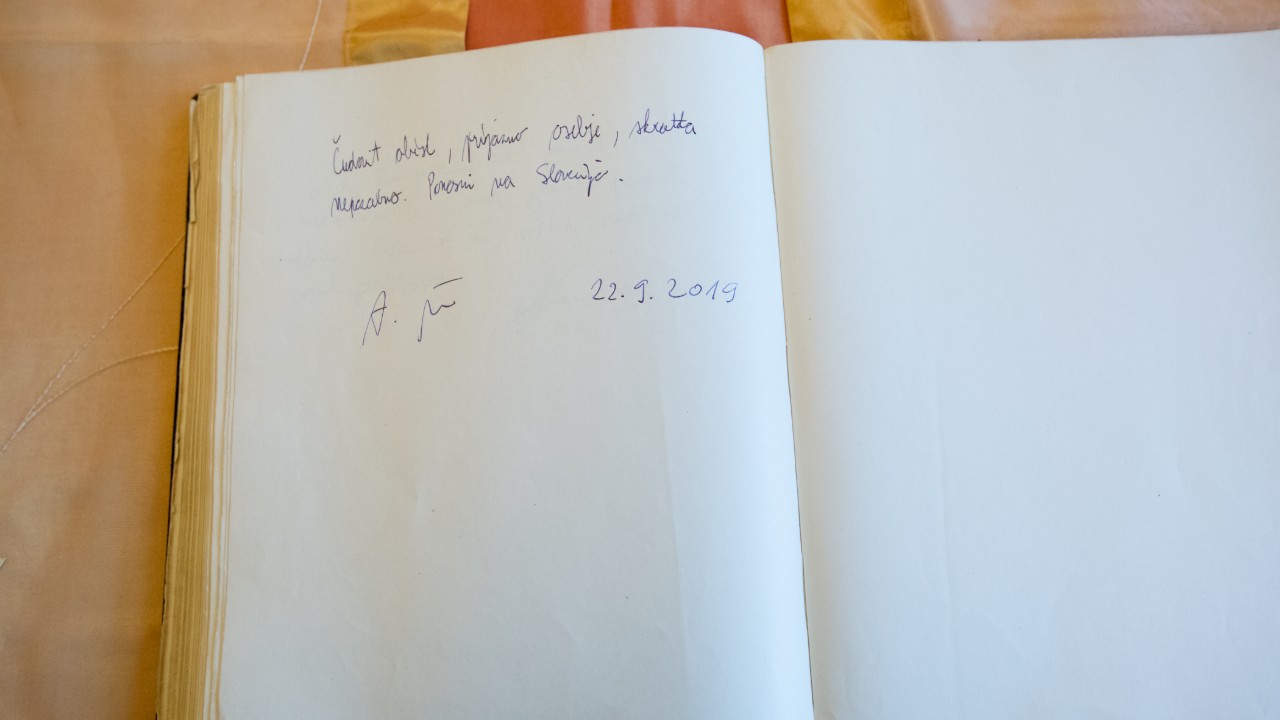 Čudovit obisk, prijazno osebje, skratka
nepozabno. Ponosni na Slovenijo.
A. 22.9.2019